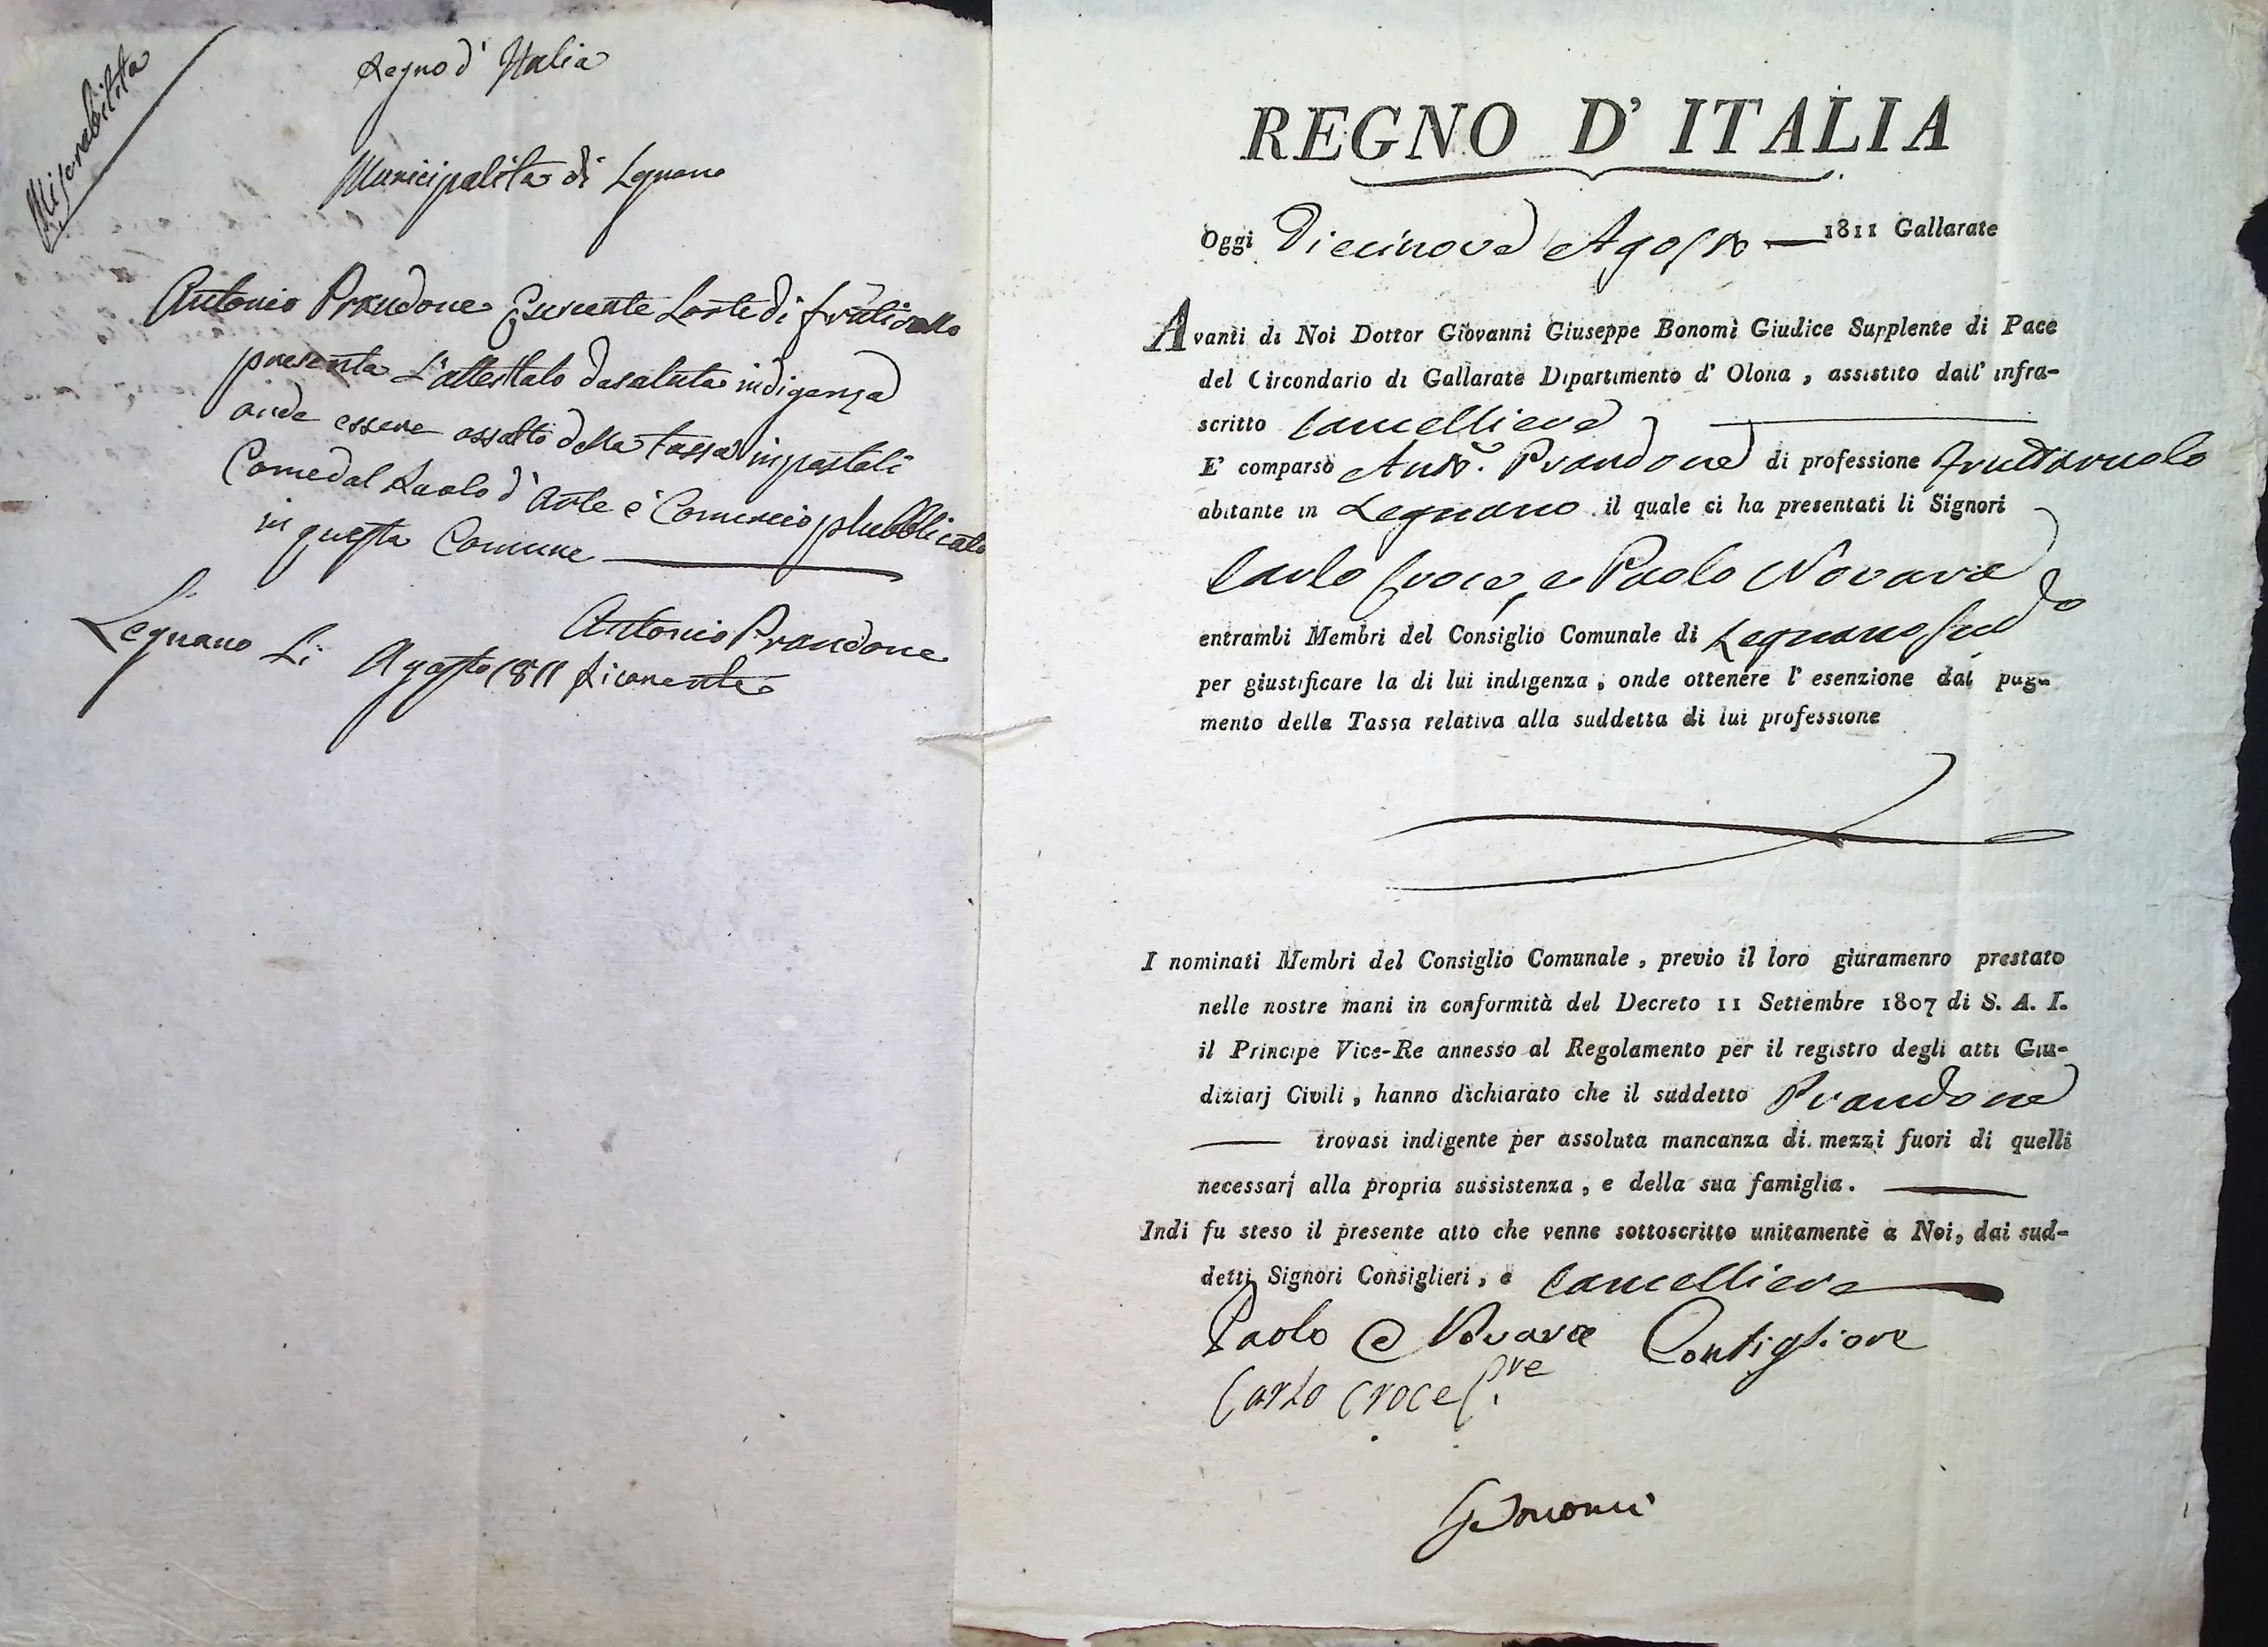 Miserabilita
Regno d' Italia
Municipalita di Legnano
Antonio Prandone Esercente Larte di frutirollo
presenta L'attestato dasaluta indigenza
onde essere assalto della tassa inpastali
Come dal Ruolo d' Arte e Comercio phubblicato
in questa Comune
Antonio Prandone
Legnano Li Agosto 1811 Ricorente
REGNO D' ITALIA
Oggi Diecinove Agosto 1811 Gallarate
Avanti di Noi Dottor Giovanni Giuseppe Bonomi Giudice Supplente di Pace
del Circondario di Gallarate Dipartimento d' Olona , assistito dall' infra-
scritto Cancelliere
E' comparso Ant.º Prandone di professione Fruttaruolo
abitante in Legnano il quale ci ha presentati li Signori
Carlo Croce, e Paolo Novara
entrambi Membri del Consiglio Comunale di Legnano sud.do
per giustificare la di lui indigenza , onde ottenere l' esenzione dal paga
mento della Tassa relativa alla suddetta di lui professione
I nominati Membri del Consiglio Comunale , previo il loro giuramenro prestato
nelle nostre mani in conformità del Decreto 11 Settembre 1807 di S. A. I.
il Principe Vice-Re annesso al Regolamento per il registro degli atti Giu-
diziarj Civili , hanno dichiarato che il suddetto Prandone
trovasi indigente per assoluta mancanza di mezzi fuori di quelli
necessarj alla propria sussistenza , e della sua famiglia .
Indi fu steso il presente atto che venne sottoscritto unitamente a Noi, dai sud-
detti Signori Consiglieri , e Cancelliere
Paolo Novara Consigliore
Carlo Croce C.re
Bonomi